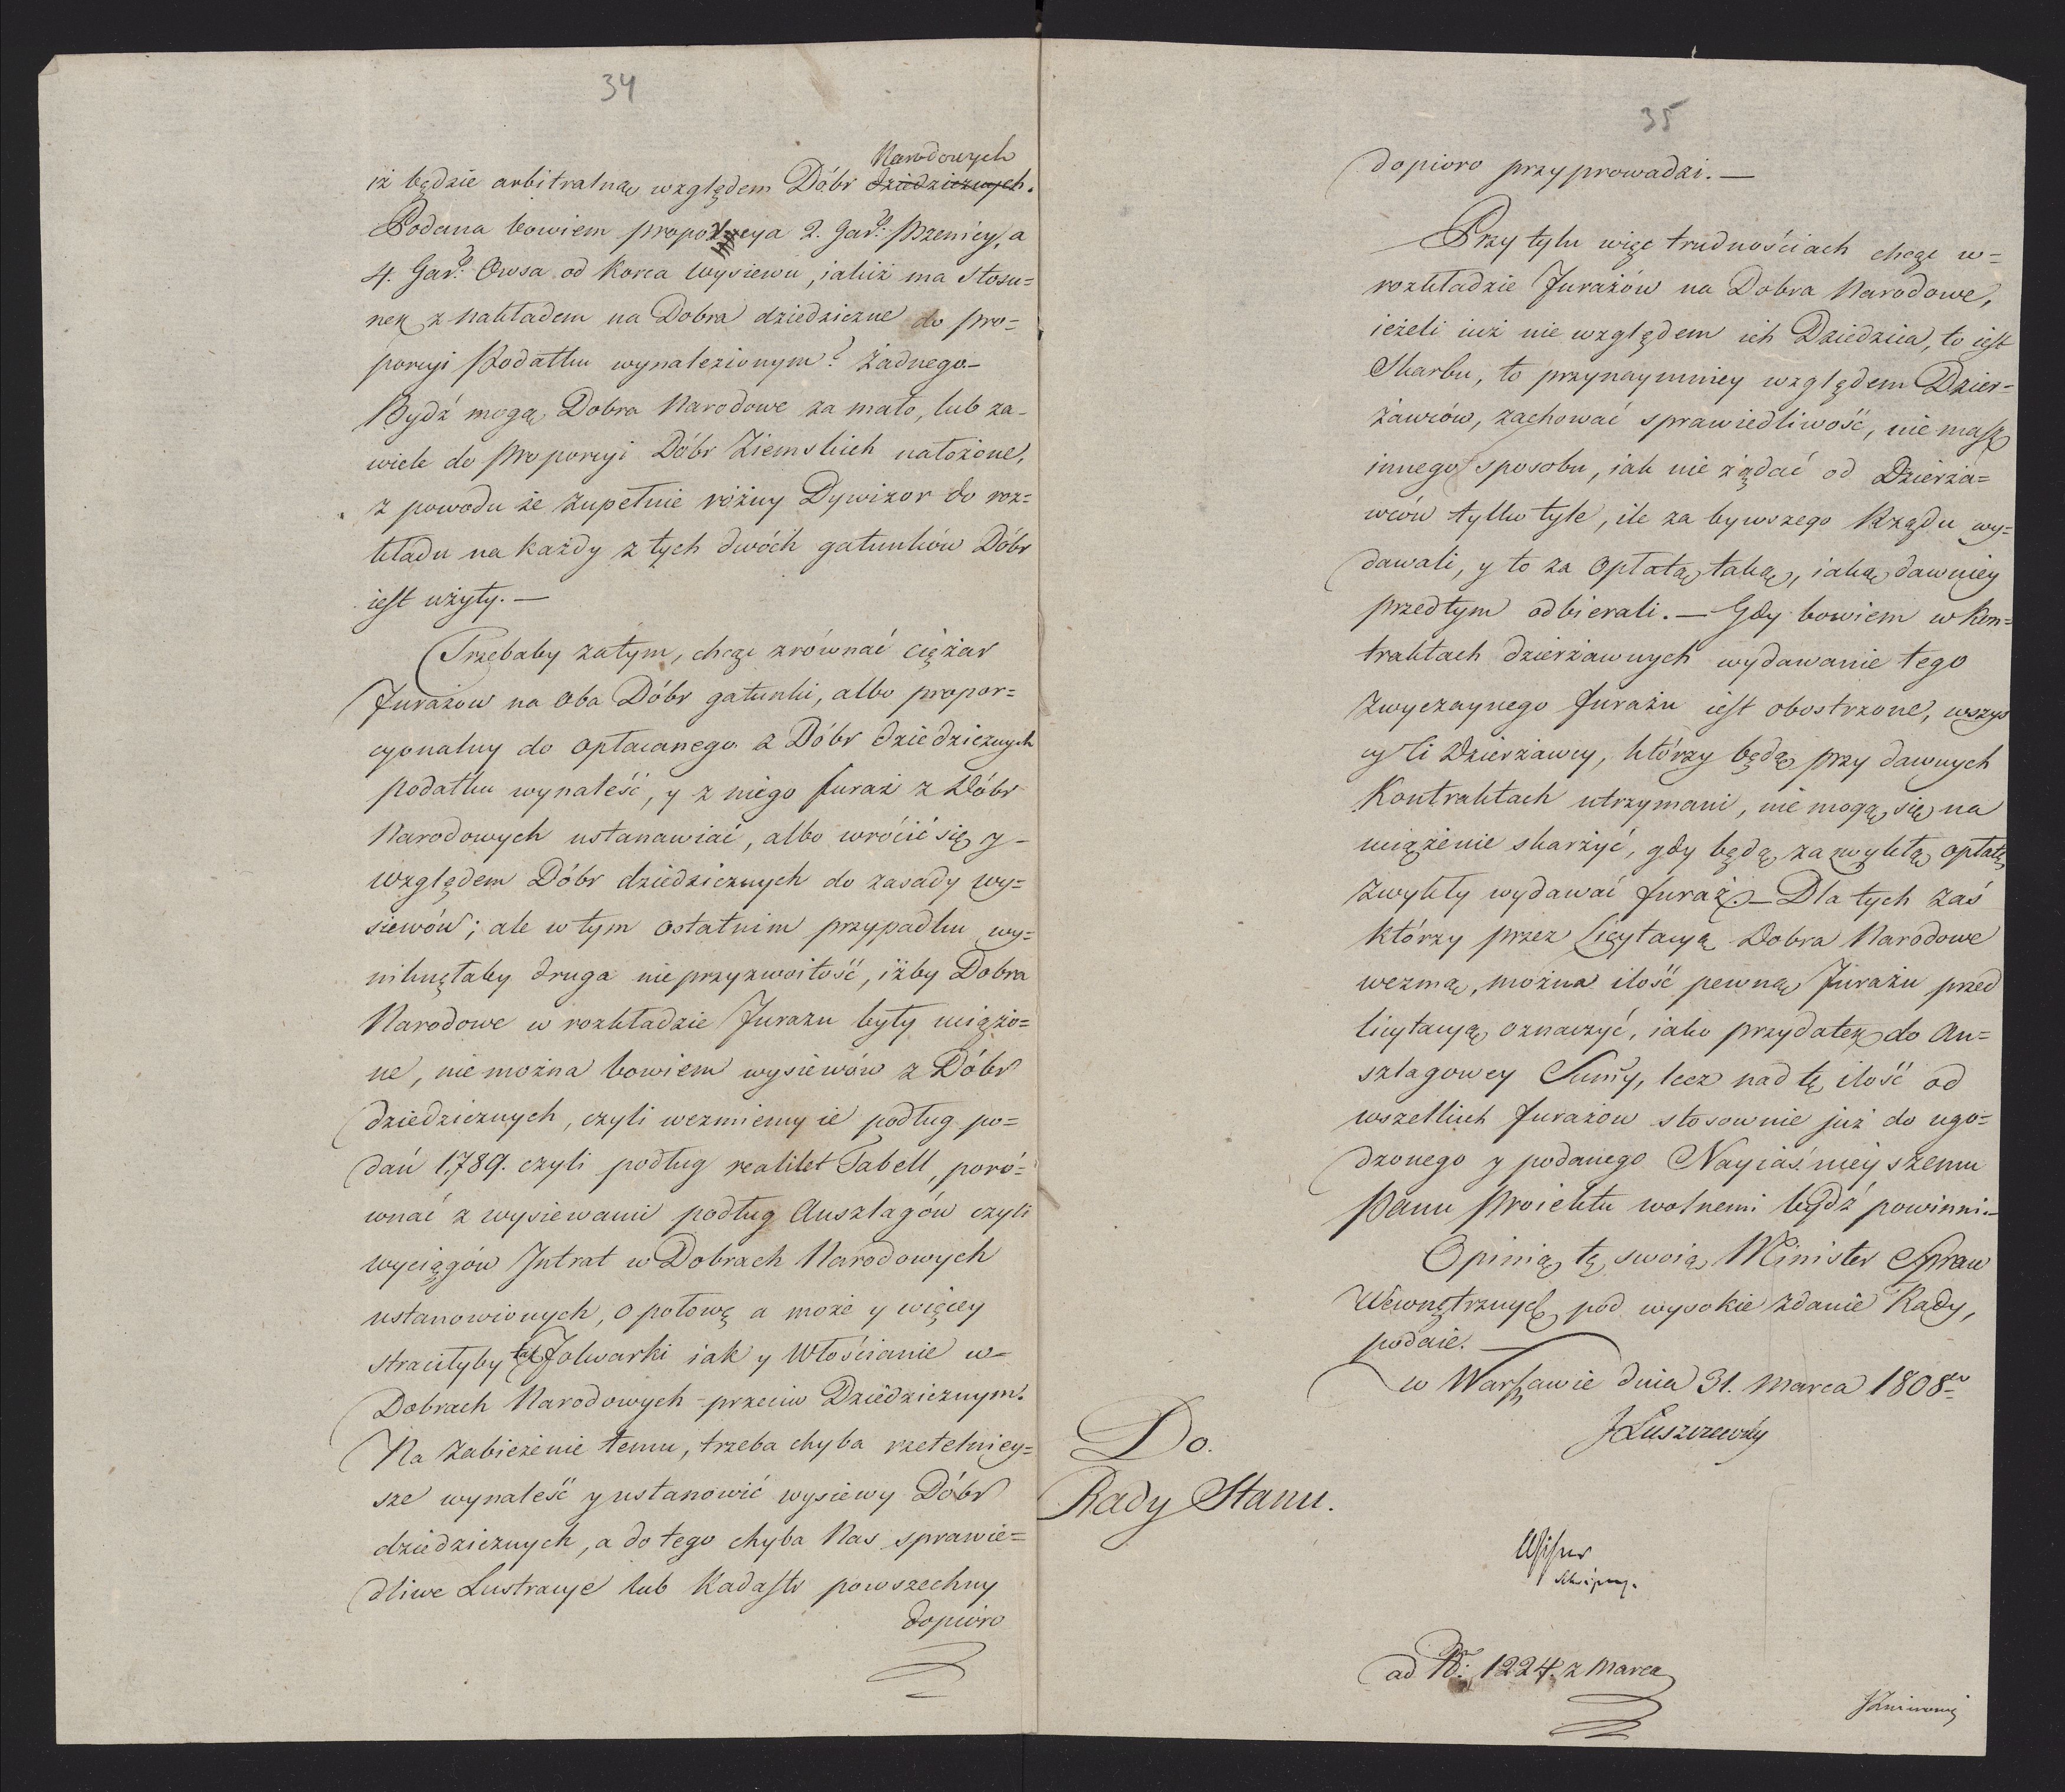 34
Narodowych
iż będzie arbitralną względem Dóbr dziedzicznych.
Podana bowiem propozycya 2. Gar: Pszenicy, a
4. Gar: Owsa od Korca Wysiewu, iakiż ma Stosu=
nek z nakładem na Dobra dziedziczne do pro=
porcyi Podatku wynalezionym? Żadnego.—
Bydź mogą Dobra Narodowe za mało, lub za-
wiele do Proporcyi Dóbr Ziemskich nałożone,
z powodu że zupełnie różny Dywizor do roz=
kładu na każdy z tych dwóch gatunków Dóbr
iest użyty.—
Trzebaby zatym, chcąc zrównać Ciężar
Furażow na oba Dóbr gatunki, albo propor=
cyonalny do opłacanego z Dóbr dziedzicznych
podatku wynaleść, y z niego furaż z Dóbr
Narodowych ustanawiać, albo wrócić się z-
względem Dóbr dziedzicznych do zasady wy=
siewów; ale w tym ostatnim przypadku wy=
niknęłaby druga nieprzyzwoitość, iżby Dobra
Narodowe w rozkładzie Furażu były uciążo=
ne, nie można bowiem wysiewów z Dóbr
dziedzicznych, czyli wezmiemy ie podług po=
dań 1789. czyli podług realitet Tabell, poró=
wnać z wysiewami podług Auszlagów czyli
wyciągów Intrat w Dobrach Narodowych
ustanowionych, o połowę a może y więcey
straciłyby tak Folwarki iak y Włościanie w=
Dobrach Narodowych przeciw Dziedzicznym.
Na zabieżenie temu, trzeba chyba rzetelniey=
sze wynaleść y ustanowić wysiewy Dóbr
dziedzicznych, a do tego chyba Nas sprawie=
dliwe Lustracye lub Kadastr powszechny
dopioro
35
dopioro przyprowadzi.—
Przy tylu więc trudnościach chcąc w=
rozkładzie Furażów na Dobra Narodowe,
ieżeli iuż nie względem ich Dziedzica, to iest
Skarbu, to przynaymniey względem Dzier=
żawców, zachować sprawiedliwość, nie masz
innego sposobu, iak nie żądać od Dzierża=
wców tylko tyle, ile za bywszego Rządu wy=
dawali, y to za opłatą taką, iaką dawniey
przedtym odbierali.— Gdy bowiem w Kon=
traktach dzierżawnych wydawanie tego
zwyczaynego furażu iest obostrzone, wszys
cy Ci Dzierżawcy, którzy będą przy dawnych
Kontraktach utrzymani, nie mogą się na
uciążenie skarżyć, gdy będą za zwykłą opłatę
zwykły wydawać furaż.— Dla tych zaś
którzy przez Licytacyą Dobra Narodowe
wezmą, można ilość pewną Furażu przed
licytacyą oznaczyć, iako przydatek do An=
szlagowey Summy, lecz nad tę ilość od
wszelkich furażow stosownie już do ugo=
dzonego y podanego Nayiaśnieyszemu
Panu Proiektu wolnemi bydź powinni.—
Opinią tę swoią Minister Spraw
Wewnętrznych pod wysokie zdanie Rady,
podaie.—
w Warszawie dnia 31. Marca 1808
JŁuszczewski
Do.
Rady Stanu.
ad N: 1224. z Marca